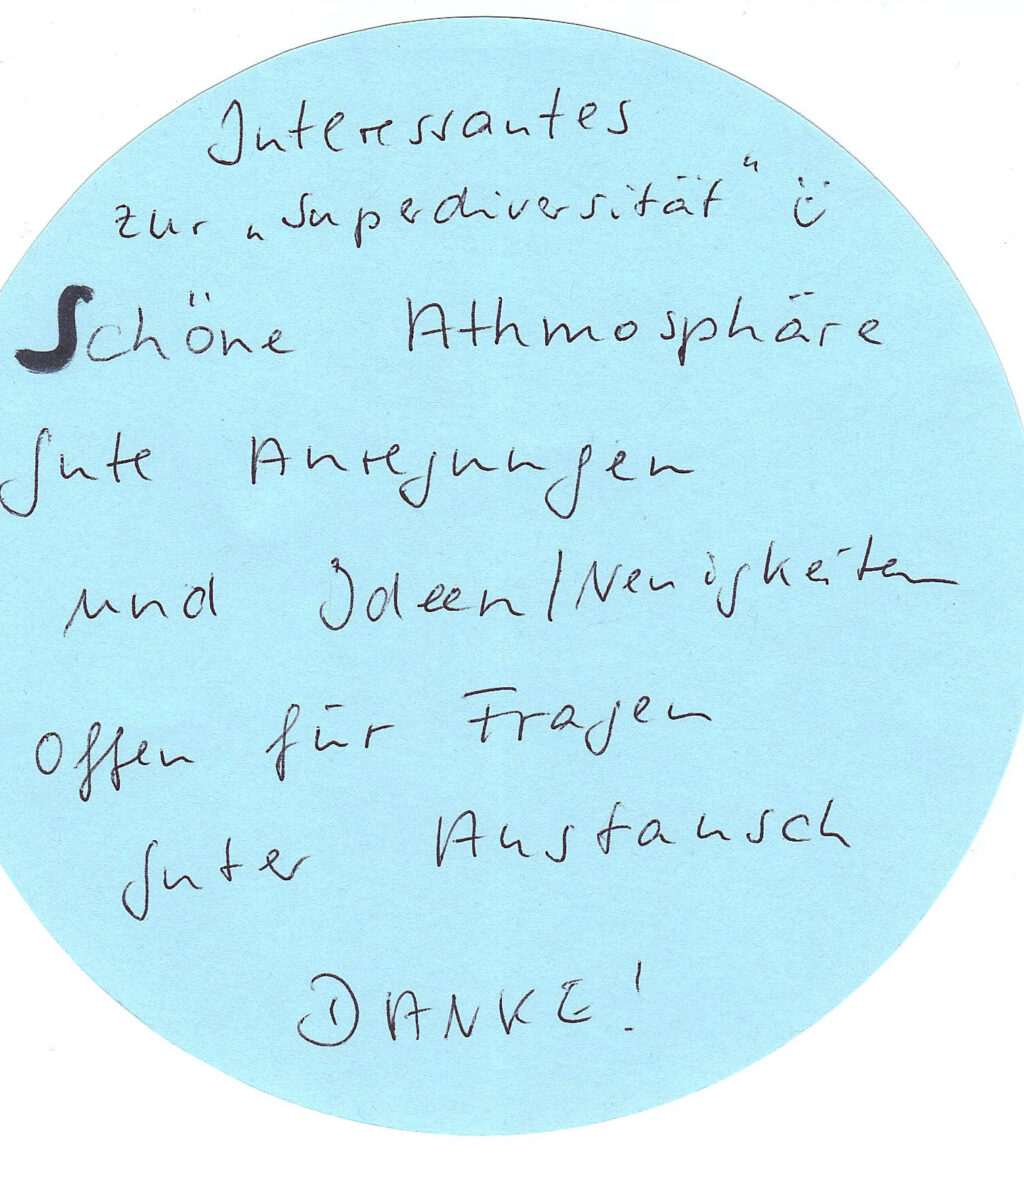 Interessantes
zur „Superdiversität“ ü
Schöne Athmosphäre
gute Anregungen
und Ideen/Neuigkeiten
Offen für Fragen
guter Austausch
DANKE!